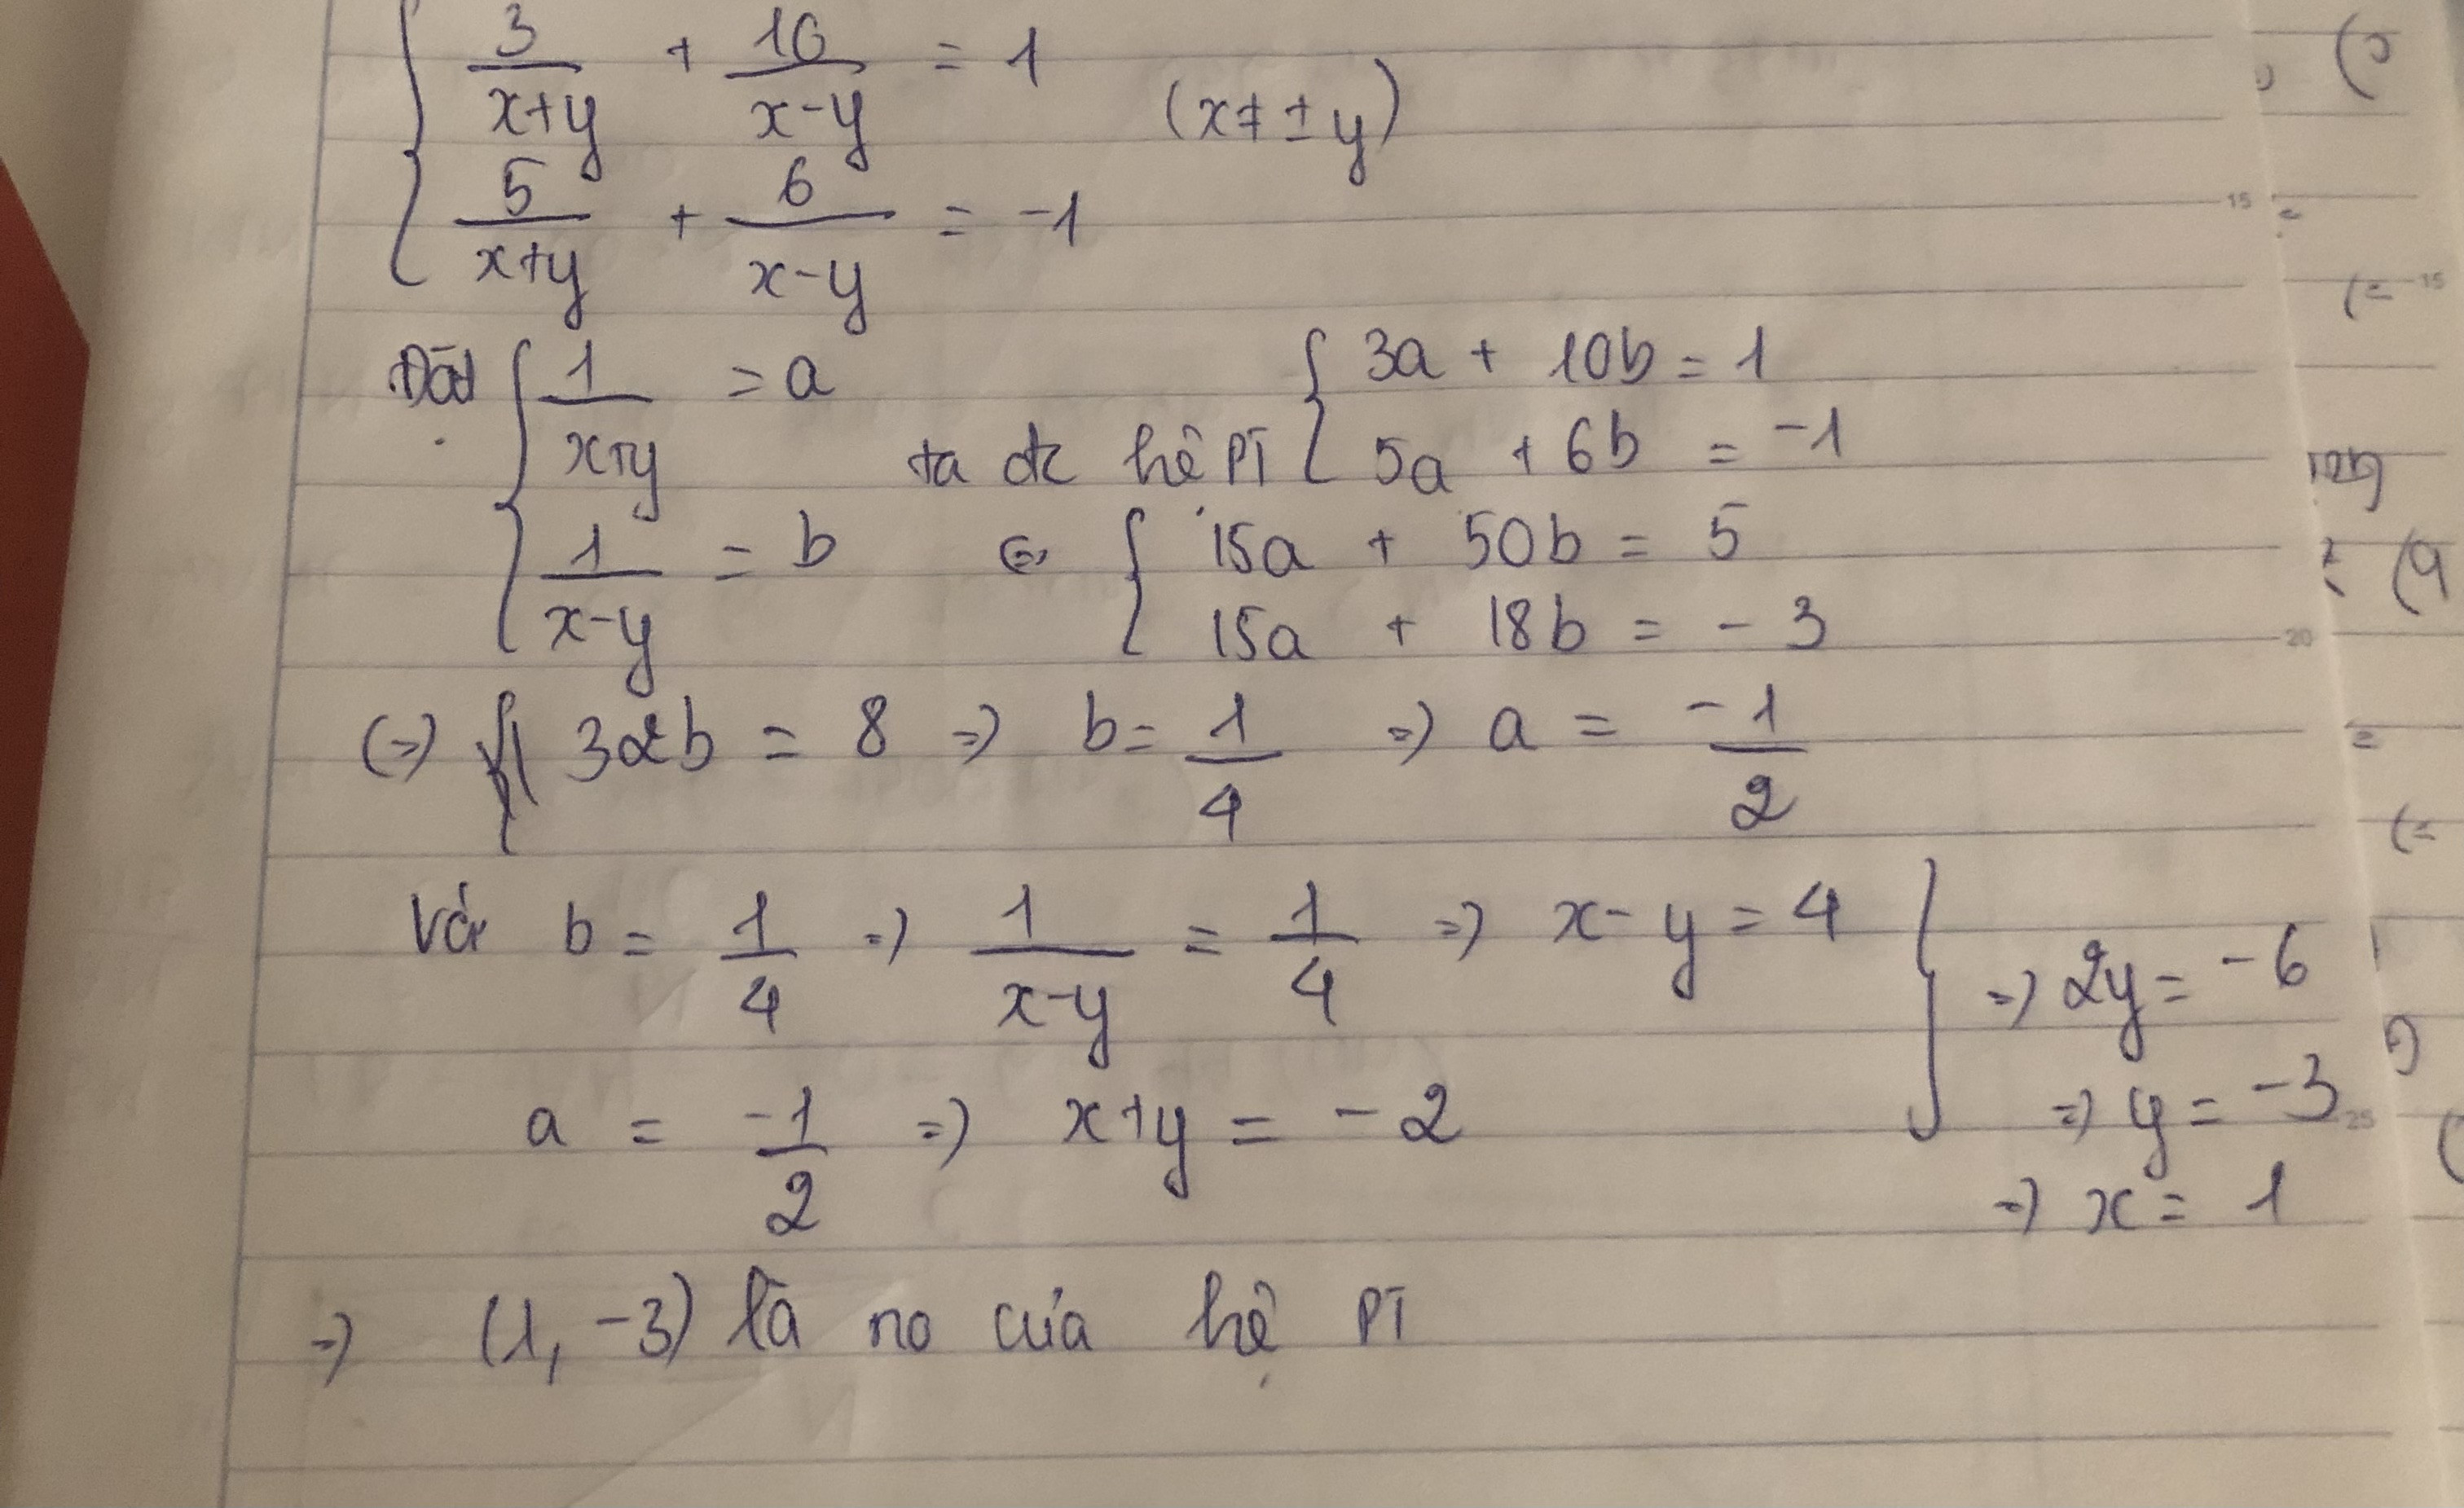 { 3/(x+y) + 10/(x-y) = 1 (x ≠ ± y)
{ 5/(x+y) + 6/(x-y) = -1
Đặt { 1/(x+y) = a
{ 1/(x-y) = b
ta đc hệ PT { 3a + 10b = 1
{ 5a + 6b = -1
(=) { 15a + 50b = 5
{ 15a + 18b = - 3
(=) 32b = 8 => b = 1/4 => a = -1/2
Với b = 1/4 => 1/(x-y) = 1/4 => x - y = 4
a = -1/2 => x+y = - 2
} => 2y = -6
=> y = -3
=> x = 1
=> (1, -3) là no của hệ PT
15
20
25
15